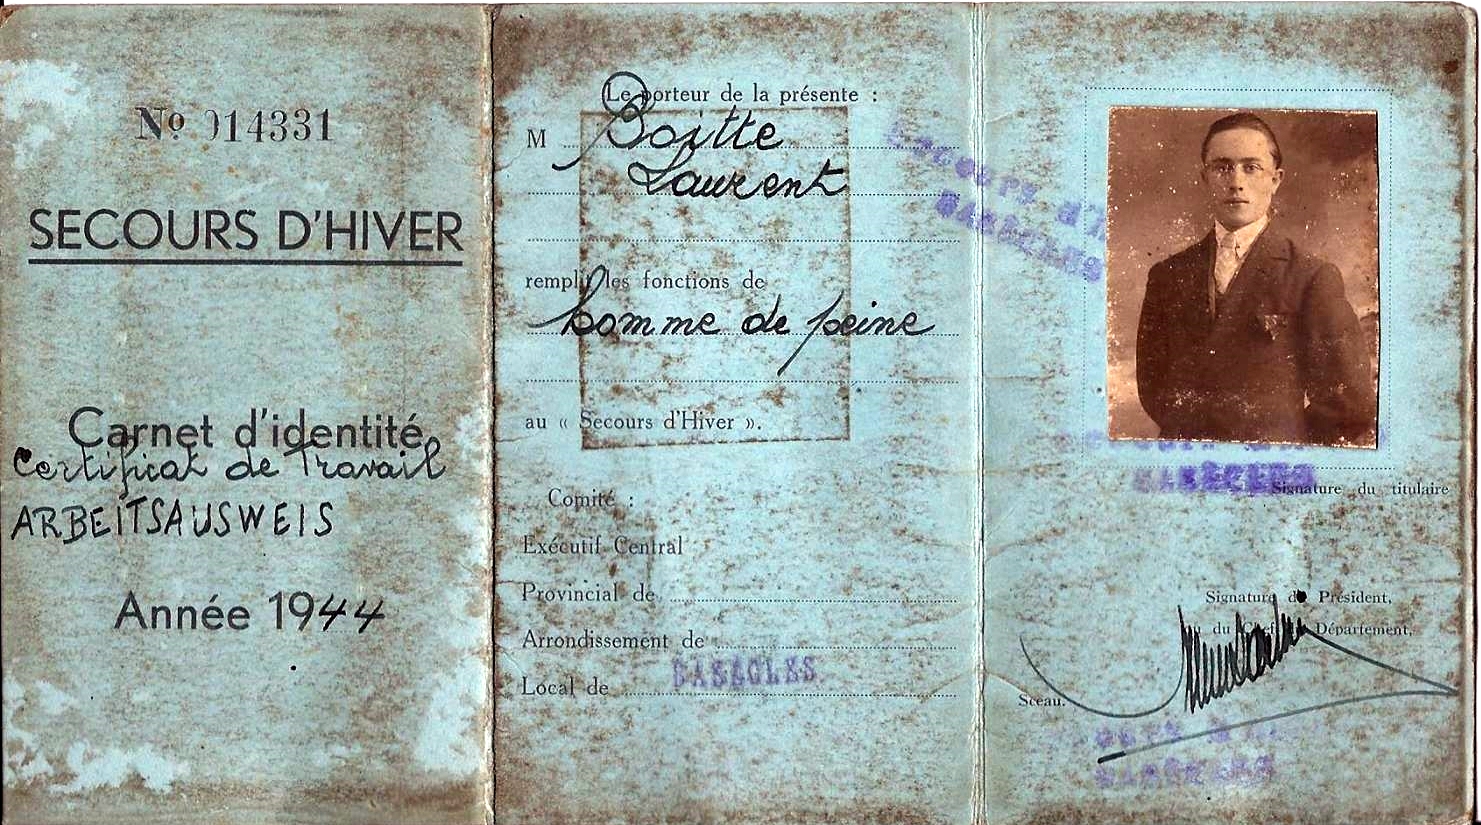 Nº 914331
SECOURS D'HIVER
Carnet d'identité
Certificat de Travail
ARBEITSAUSWEIS
Année 1944
Le porteur de la présente :
M Boitte
Laurent
remplit les fonctions de
homme de peine
au « Secours d'Hiver ».
Comité :
Exécutif Central
Provincial de
Arrondissement de
Local de BASÈCLES
Secours d'H
BASÈCLES
BASÈCLES
Signature du titulaire
Signature du Président,
ou du Chef de Département,
Sceau.
BASÈCLES